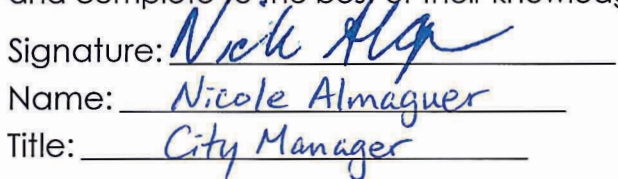 and complete to the best of their knowledg
Signature:
Name: Nicole Almaguer
Title: City Manager